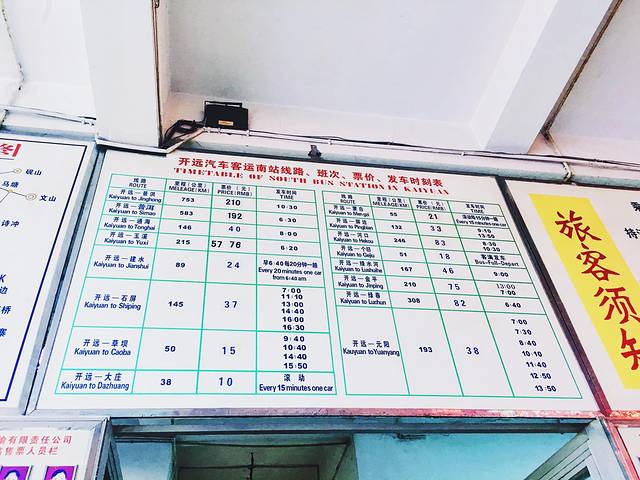 开远汽车客运南站线路、班次、票价、发车时刻表
TIMETABLE OF SOUTH BUS STATION IN KAIYUAN
线路 ROUTE 里程（公里） MILEAGE(KM) 票价（元） PRICE(RMB) 发车时间 TIME
Kaiyuan to Jinghong 753 210 10:30
开远—普洱 Kaiyuan to Simao 583 192 6:30
开远—通海 Kaiyuan to Tonghai 146 40 8:00
开远—玉溪 Kaiyuan to Yuxi 215 57 76 6:20
开远—建水 Kaiyuan to Jianshui 89 24 早6:40每20分钟一班 Every 20 minutes one car from 6:40am
开远—石屏 Kaiyuan to Shiping 145 37 7:00
11:10
13:00
14:40
16:00
16:30
开远—草坝 Kaiyuan to Caoba 50 15 9:40
10:40
14:40
15:50
开远—大庄 Kaiyuan to Dazhuang 38 10 滚动 Every 15 minutes one car
线路 ROUTE 里程（公里） MILEAGE(KM) 票价（元） PRICE(RMB) 发车时间 TIME
开远—蒙自 Kaiyuan to Mengzi 55 21 Every 15 minutes one car
开远—屏边 Kaiyuan to Pingbian 132 33 9:10
13:50
开远—河口 Kaiyuan to Hekou 246 83 8:30
10:35
开远—个旧 Kaiyuan to Gejiu 51 18 客满发车 Bus-Full-Depart
开远—绿水河 Kaiyuan to Lushuihe 167 46 9:00
开远—金平 Kaiyuan to Jinping 210 75 13:00
7:00
开远—绿春 Kaiyuan to Luchun 308 82 6:40
开远—元阳 Kauyuan toYuanyang 193 38 7:00
7:30
8:40
10:10
11:40
12:50
13:50
砚山
马塘
文山
诗冲
旅客须知
输有限责任公司
售票人员栏